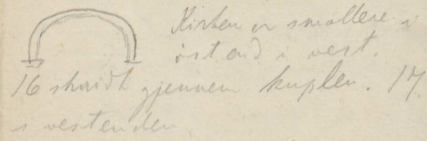 Kirken er smallere i
öst end i vest.
16 skridt gjennem kuplen. 17
i vestenden